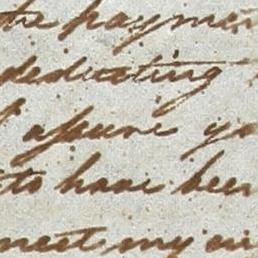 the paymen
deducting
I assure yo
to have been
meet my en